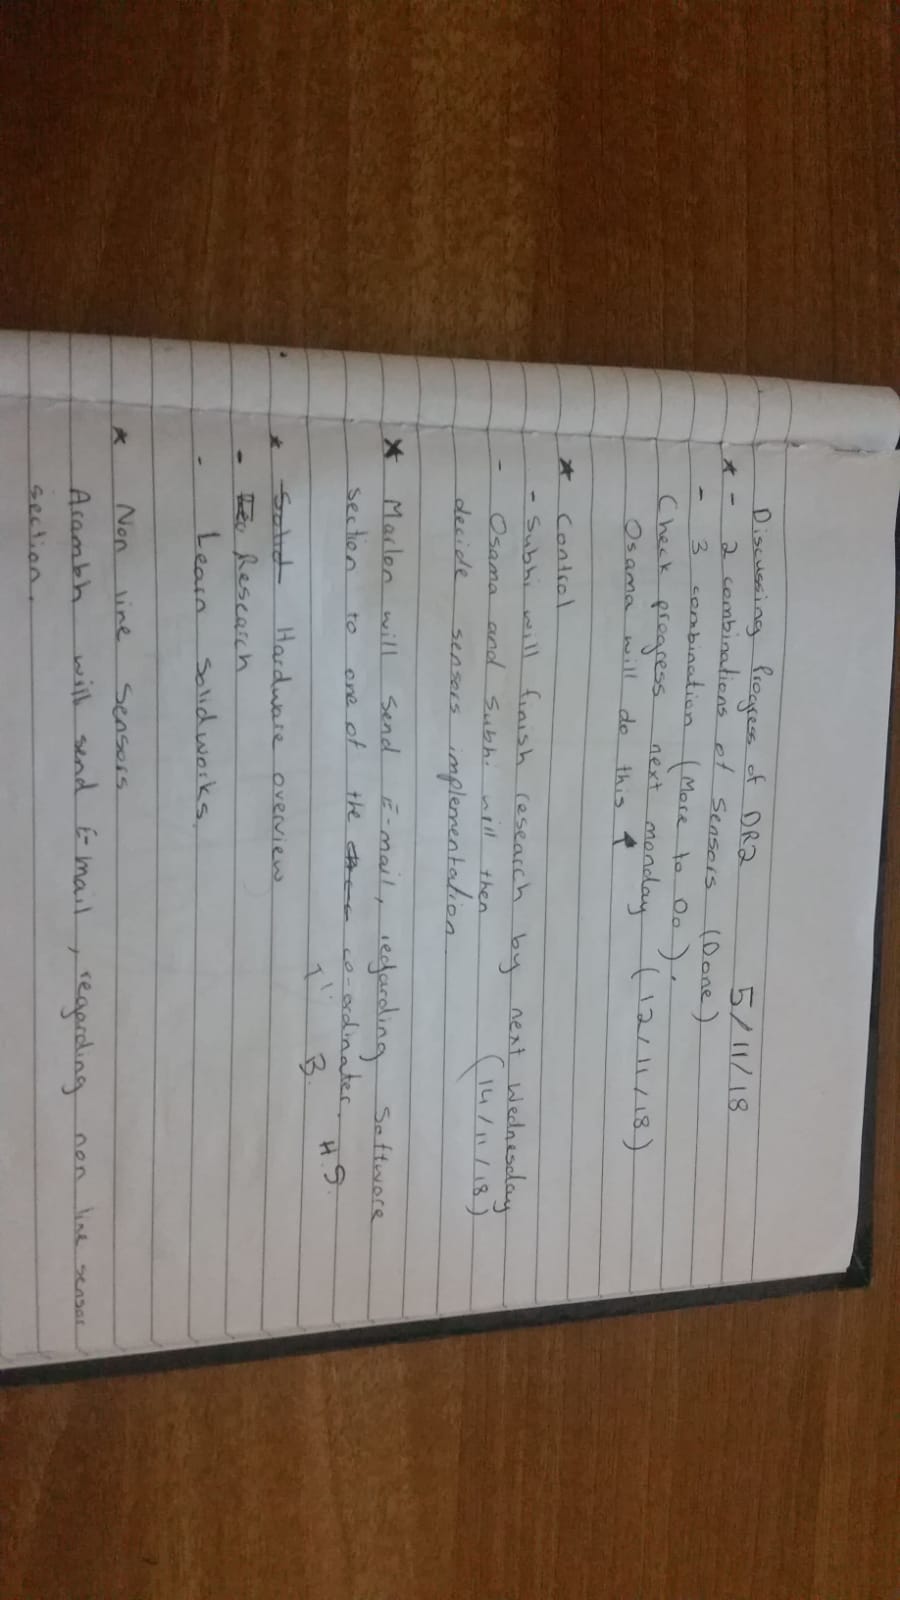 Discussing Progress of DR2 5/11/18
* - 2 combinations of Sensors (Done)
- 3 combination (More to Do),
Check progress next monday (12/11/18)
Osama will do this ↑
* Control
- Subhi will finish research by next Wednesday
- Osama and Subhi will then (14/11/18)
decide sensors implementation
* Marlon will send E-mail, regarding Software
section to one of the co-ordinater. H.S.
B.
* Solid Hardware overview
- Research
- Learn Solidworks.
* Non line Sensors
Arambh will send E-mail, regarding non line sensor
section.